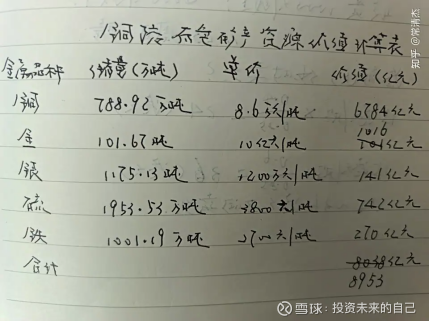 铜陵有色矿产资源价值计算表
金属品种 储量(万吨) 单价 价值(亿元)
铜 788.92万吨 8.6万元/吨 6784亿元
1016
金 101.67吨 10亿元/吨 101亿元
银 1175.13吨 1200万元/吨 141亿元
硫 1953.53万吨 3800元/吨 742亿元
铁 1001.19万吨 2700元/吨 270亿元
合计 8038亿元
8953
知乎
雪球：投资未来的自己